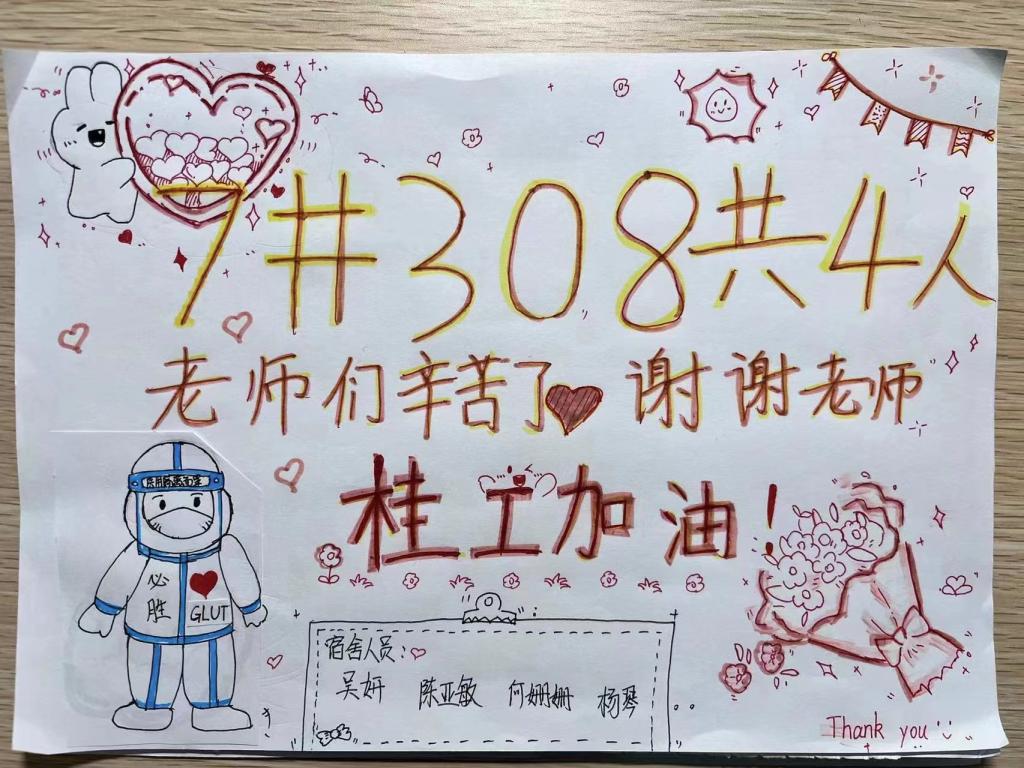 7#308共4人
老师们辛苦了 谢谢老师
桂工加油!
必胜
GLUT
宿舍人员:
吴妍 陈亚敏 何姗姗 杨琴
Thank you